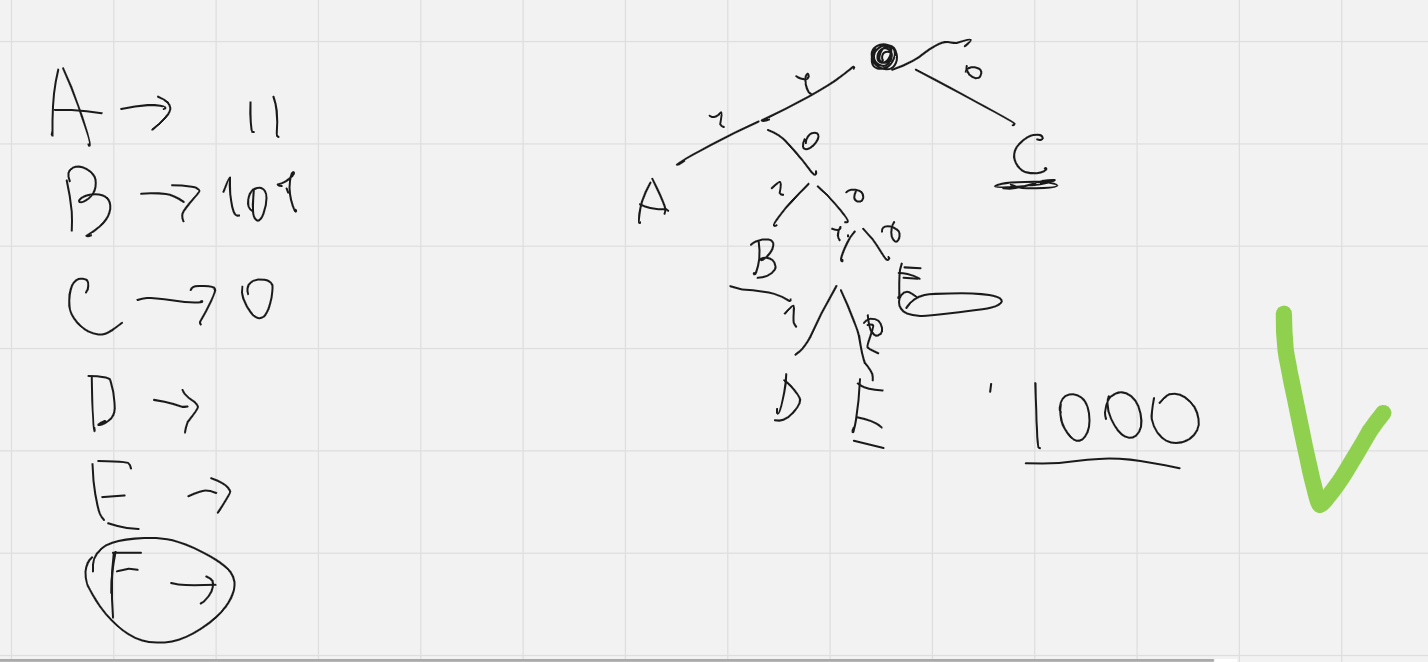 A → 11
B → 101
C → 0
D →
E →
F →
1 0
1 0
C
A
1 0
B
1 0
1
D E
1000